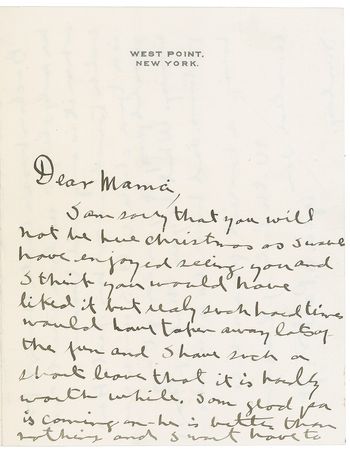 WEST POINT.
NEW YORK.
Dear Mama,
I am sorry that you will
not be hue christmas as I would
have enjoyed seeing you and
I think you would have
liked it but realy such hard times
would have taken away lots of
the fun and I have such a
short leave that it is hardly
worth while. I am glad pa
is coming on he is better than
nothing and I wont have to